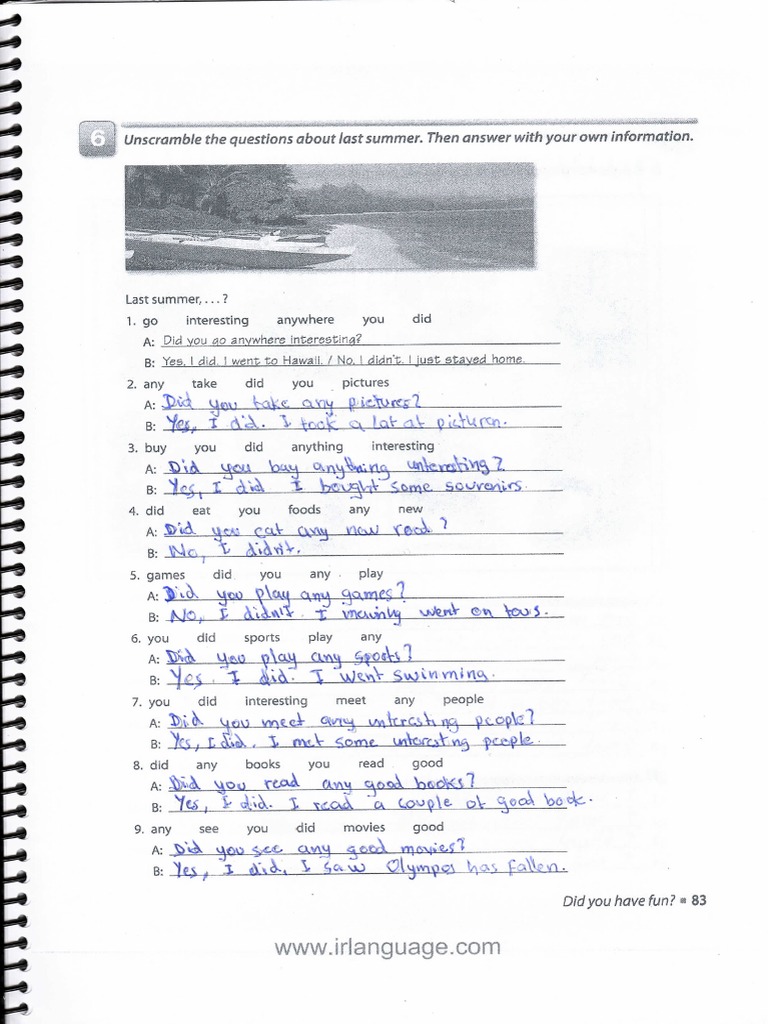 6 Unscramble the questions about last summer. Then answer with your own information.
Last summer, . . . ?
1. go interesting anywhere you did
A: Did you go anywhere interesting?
B: Yes, I did. I went to Hawaii. / No, I didn't. I just stayed home.
2. any take did you pictures
A: Did you take any pictures?
B: Yes, I did. I took a lot of picturen.
3. buy you did anything interesting
A: Did you buy anything interesting?
B: Yes, I did I bought some souvenirs.
4. did eat you foods any new
A: Did you eat any new food?
B: No, I didn't.
5. games did you any play
A: Did you play any games?
B: No, I didn't. I mainly went on tours.
6. you did sports play any
A: Did you play any sports?
B: Yes. I did. I went swinming.
7. you did interesting meet any people
A: Did you meet any interesting people?
B: Yes, I did. I met some interesting people.
8. did any books you read good
A: Did you read any good books?
B: Yes, I did. I read a couple of good book.
9. any see you did movies good
A: Did you see any good movies?
B: Yes, I did, I saw Olympos has fallen.
Did you have fun? ■ 83
www.irlanguage.com